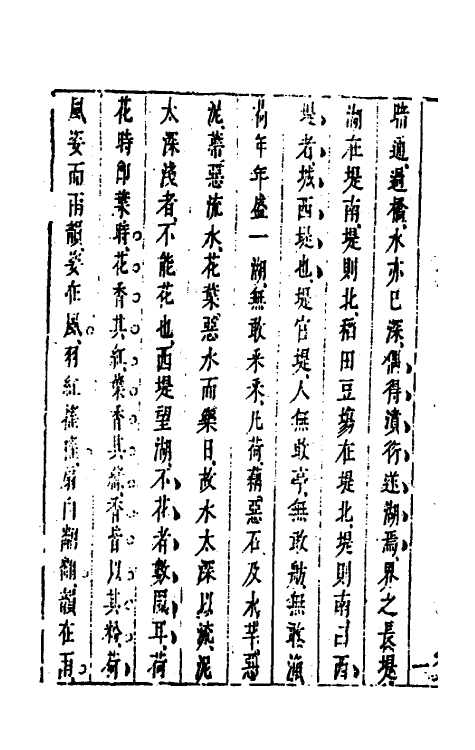 踏遍過橋水亦已深偶得濆行進湖焉界之長堤
湖在堤南堤則北稻田豆塲在堤北堤則南曰西
堤者城西堤也堤官堤人無敢亭無敢舫無敢漁
荷年年盛一湖無敢采采凡荷藕惡石及水芊惡
泥蒂惡流水花葉惡水而樂日故水太深以流泥
太深淺者不能花也西堤望湖不花者數區耳荷
花時即葉時花香其紅葉香其綠香皆以其粉荷
風姿而雨韻姿在風羽紅搖搖扇白翻翻韻在雨